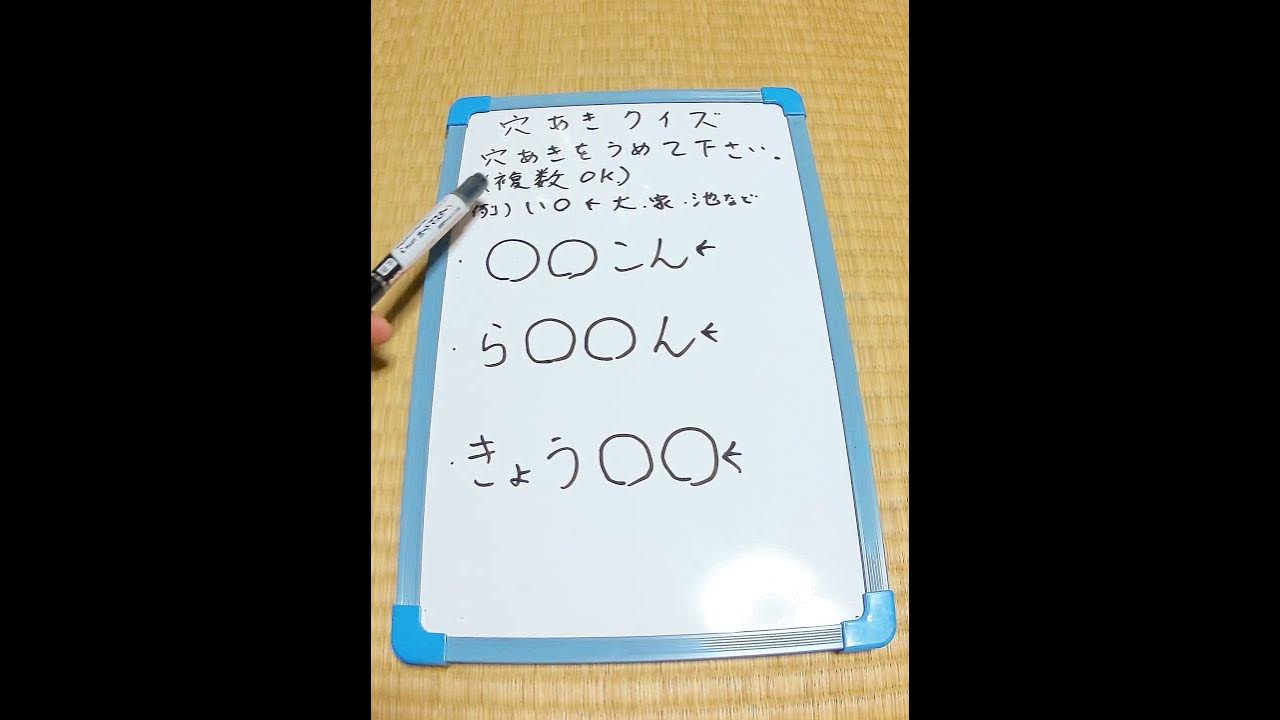 穴あきクイズ
穴あきをうめて下さい。
(複数OK)
例)い○←犬.家.池など
・○○こん←
・ら○○ん←
・きょう○○←